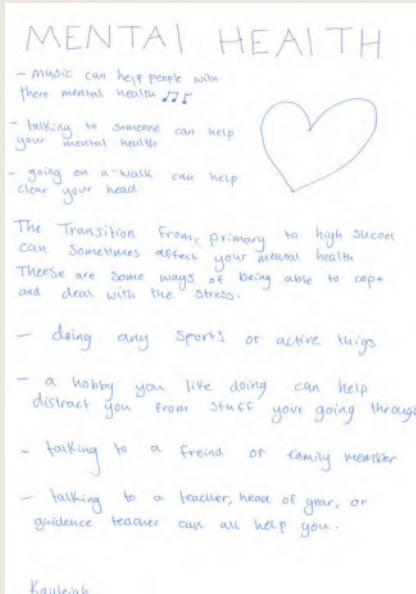 MENTAl HEALTH
- Music can help people with
there mental health ♫♪
- talking to someone can help
your mental health
- going on a walk can help
clear your head.
The Transition from primary to high shcool
can sometimes affect your mental health
Theese are some ways of being able to cope
and deal with the stress.
- doing any sports or active thigs
- a hobby you like doing can help
distract you from stuff your going through
- talking to a freind or family member
- talking to a teacher, head of year, or
guidence teacher can all help you.
Kayleigh